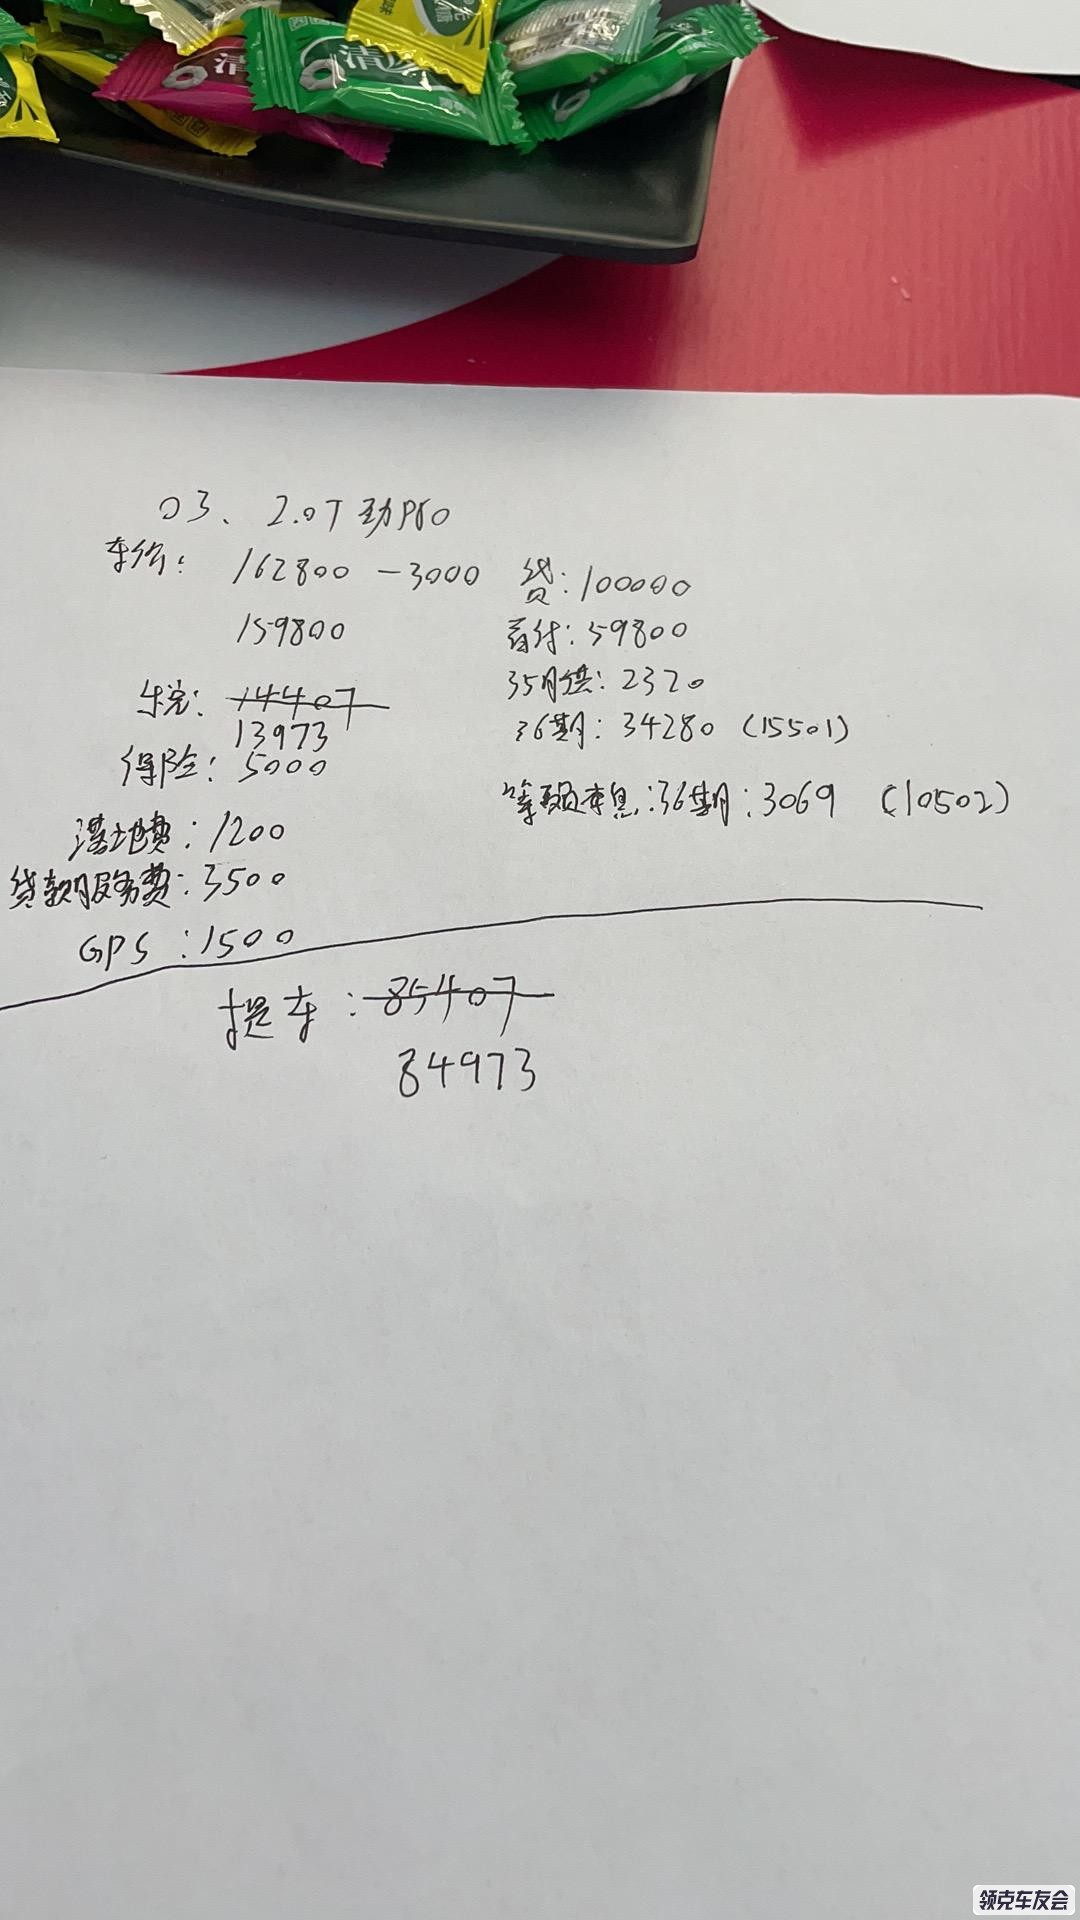 清
清
03、 2.0T 劲Pro
车价: 162800 -3000
159800
车税: 14407
13973
保险: 5000
落地费: 1200
贷款服务费: 3500
GPS: 1500
贷: 100000
首付: 59800
35月供: 2320
36期: 34280 (15501)
等额本息: 36期: 3069 (10502)
提车: 85407
84973
领克车友会